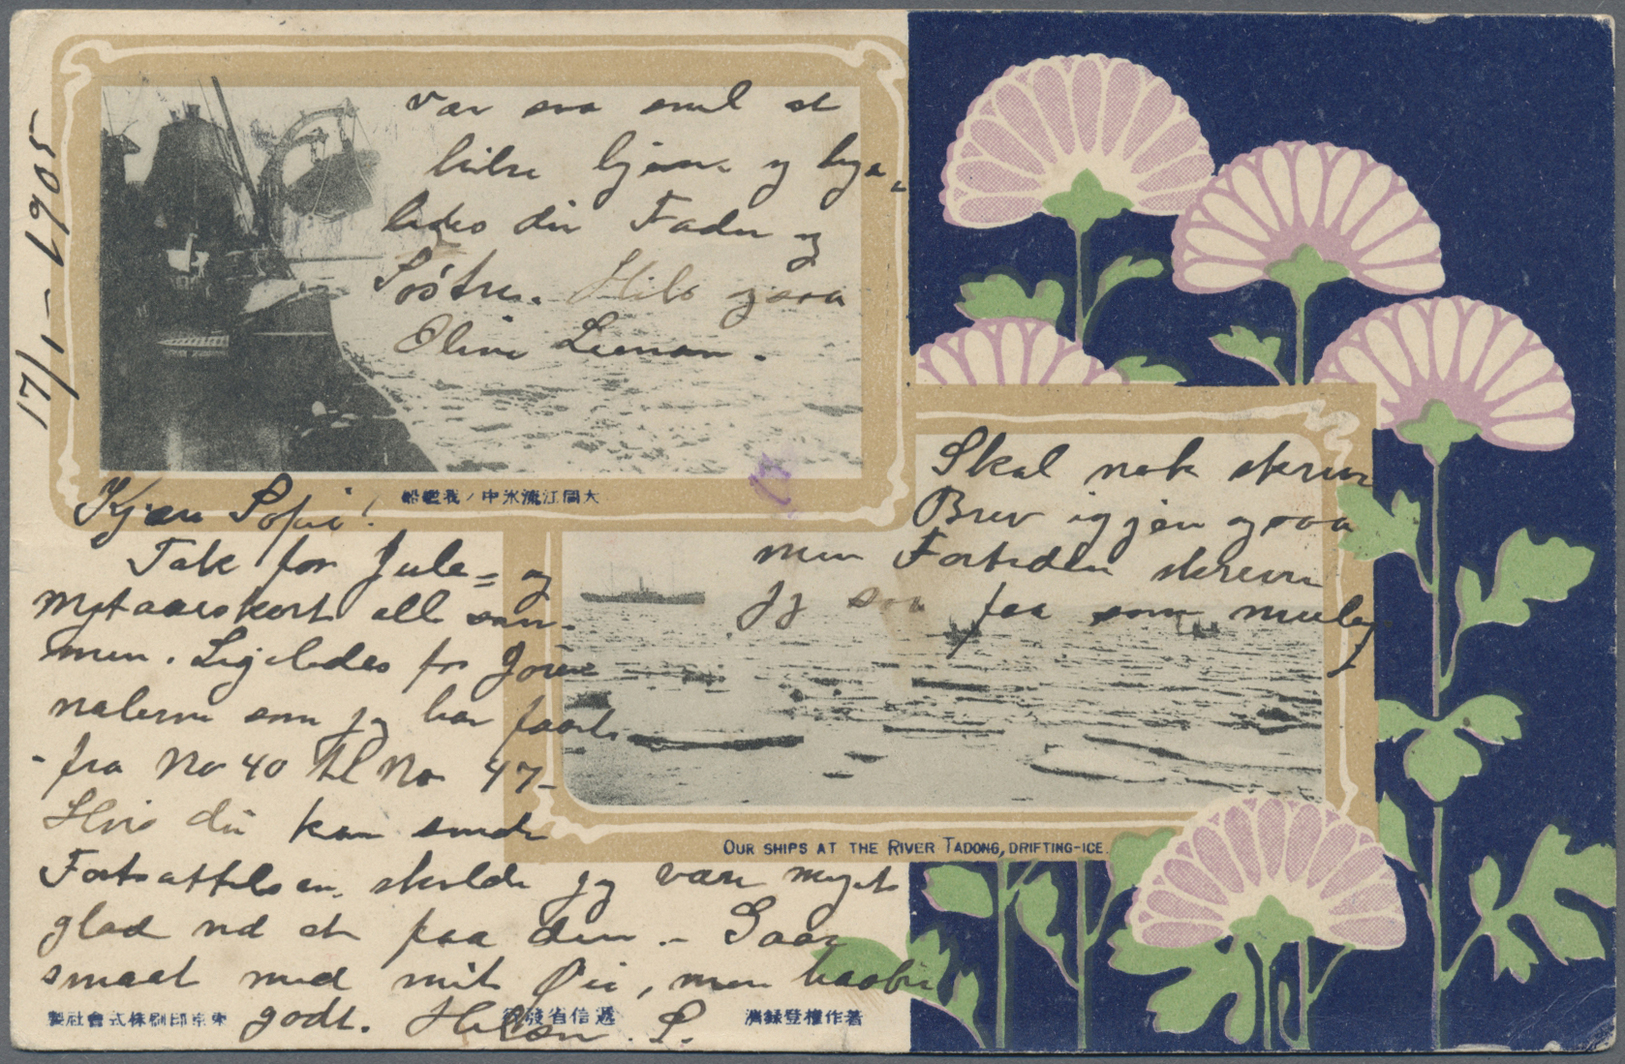 17/1 - 1905
Vær saa snil at
hilse hjem og lige=
ledes din Fader og
Söstre. Hils ogsaa
大同江流氷中ノ我艦船
Kjære Sofie!
Tak for Jule= og
Nytaarskort all sam-
men. Ligeledes for Jour
nalerne som jeg har faaet
- fra No 40 til No 47-
Hvis du kan sende
Fortsættelsen, skulde jeg være meget
glad ved at faa den. - Gaar
smaat med mit Øie, men haaber
godt. Hilsen. S.
Skal nok skrive
Brev igjen ogsaa
men Fortiden skriver
jeg saa faa som mulig
OUR SHIPS AT THE RIVER TADONG, DRIFTING-ICE.
東京印刷株式會社製
逓信省發行
著作權登録濟